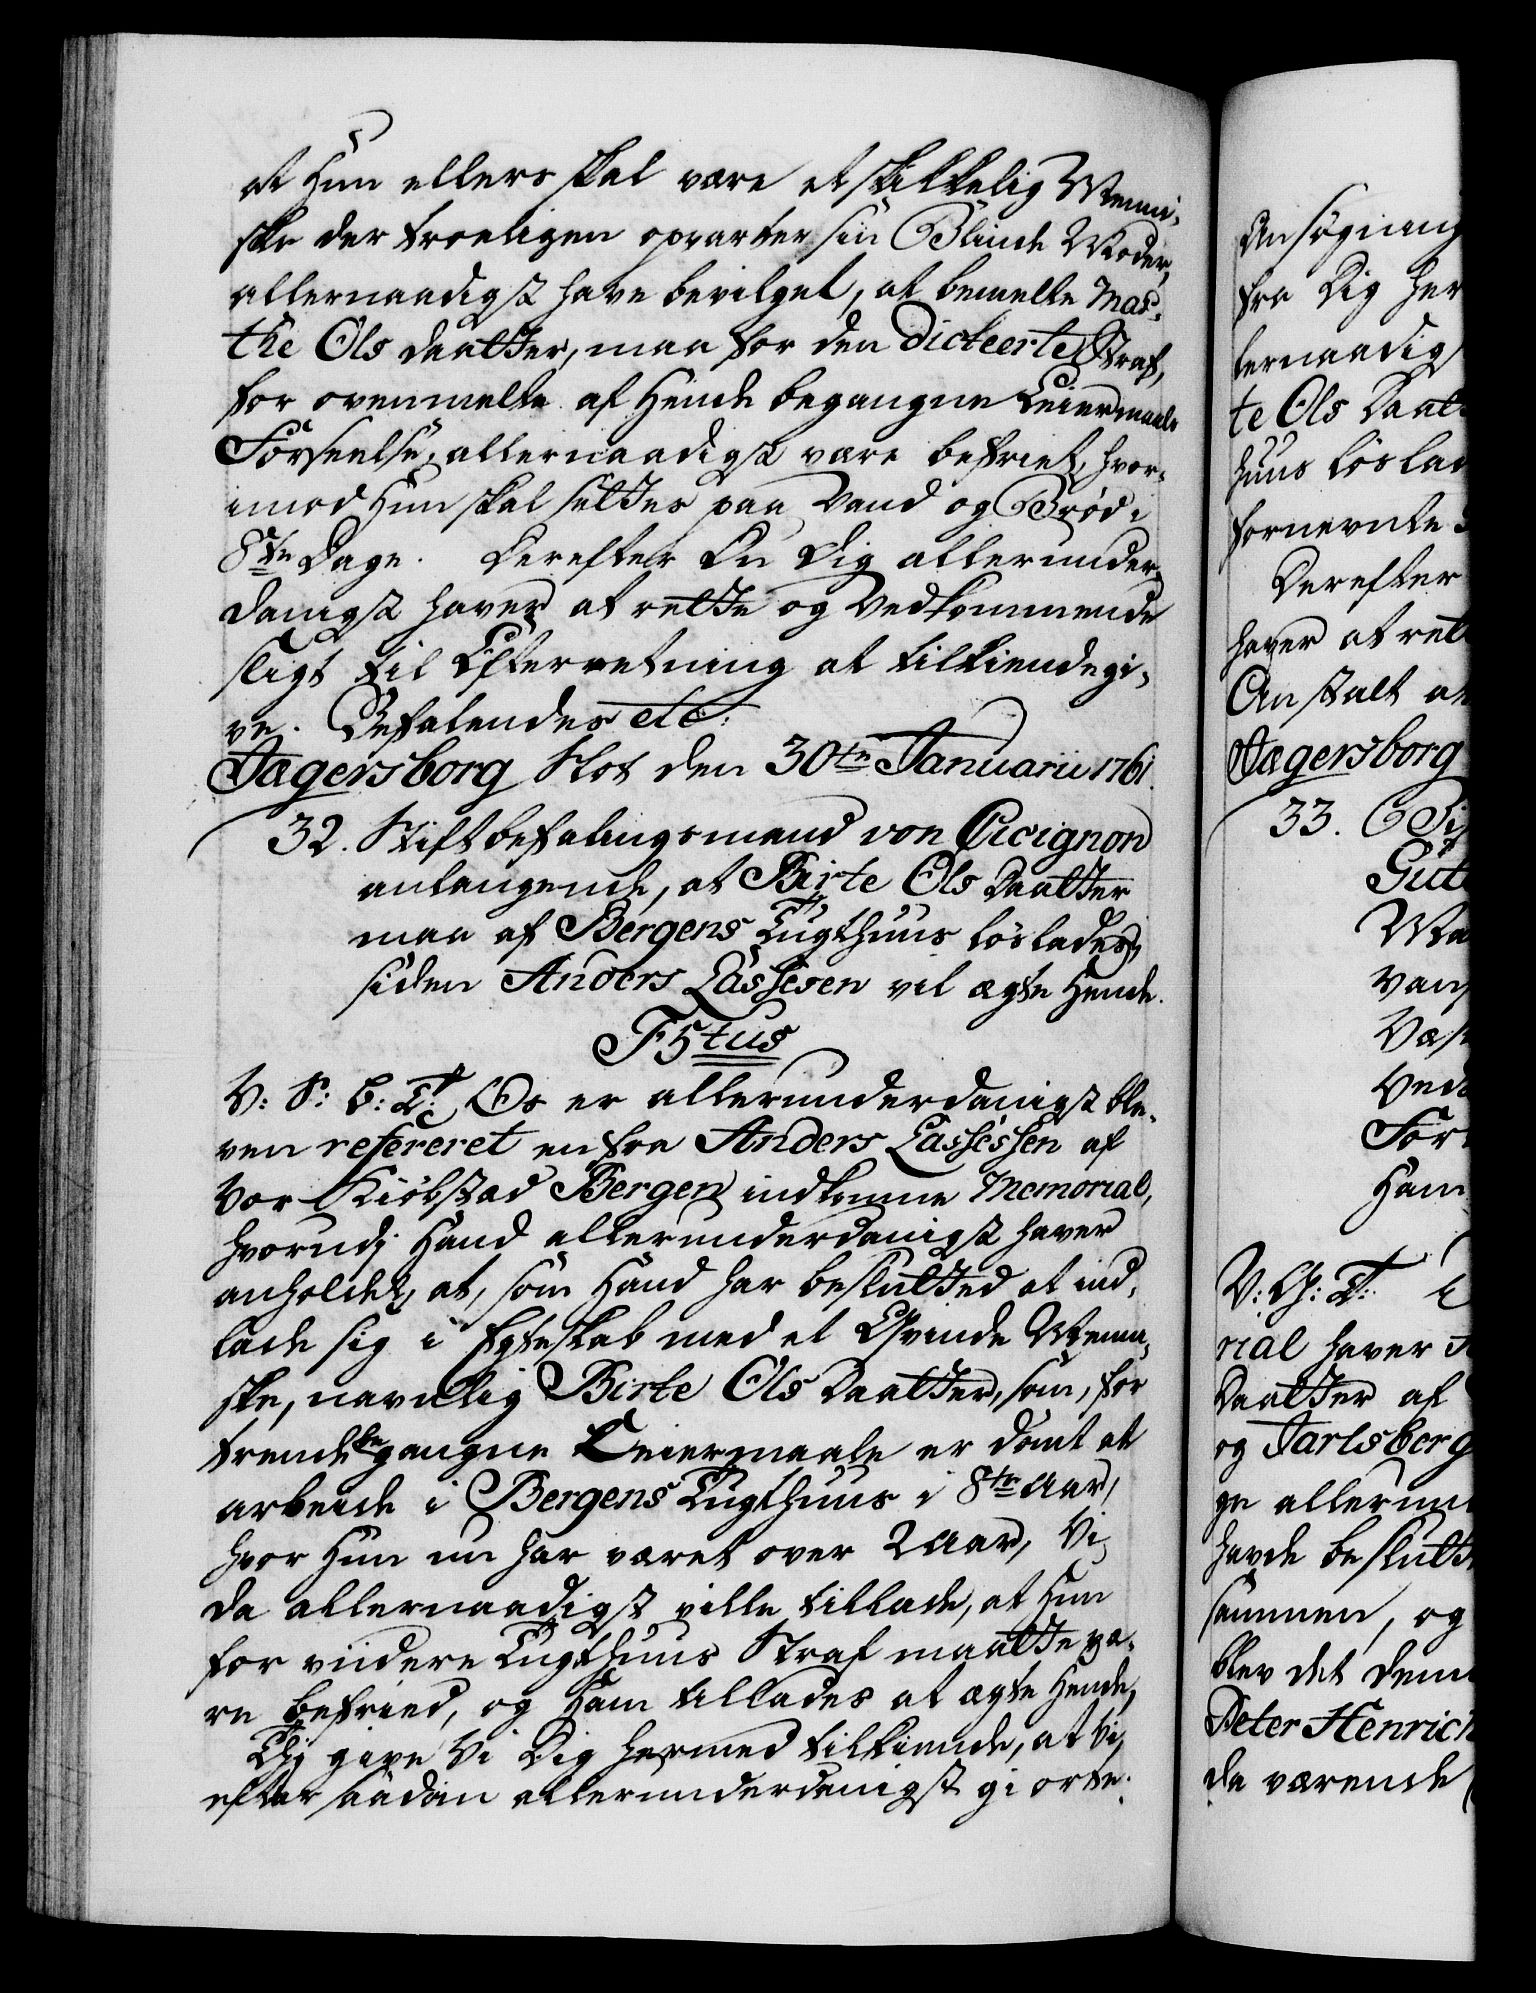 at Hun ellers skal være et skikkelig Menni-
ske der troeligen opvarter sin Blinde Moder,
allernaadigst have bevilget, at bemelte Mar-
the Ols Daatter, maa for den dicteerte Straf,
for ovenmelte af Hende begangne Leiermaals
Forseelse, allernaadigst være befriet, hvor-
imod Hun skal settes paa Vand og Brød i
8te Dage. Derefter Du Dig allerunder-
danigst haver at rette og Vedkommende
sligt til Efterretning at tilkiendegi-
ve. Befalendes etc:
Jægersborg Slot den 30te Januarii 1761.
32. Stiftbefalingsmand von Cicignon
anlangende, at Birte Ols Daatter
maa af Bergens Tugthuus løslades,
siden Anders Lassesen vil ægte Hende.
F5tus
V: S: B: T: Os er allerunderdanigst ble-
ven refereret en fra Anders Lassessen af
Vor Kiøbstad Bergen indkomne Memorial,
hvorudj Hand allerunderdanigst haver
anholdet, at, som Hand har beslutted at ind-
lade sig i Egteskab med et Qvinde Menni-
ske, navnlig Birte Ols Daatter, som, for
trende begangne Leiermaale er dømt at
arbeide i Bergens Tugthuus i 8te Aar,
hvor Hun nu har været over 2 Aar, Vi
da allernaadigst ville tillade, at Hun
for viidere Tugthuus Straf maatte væ-
re befried, og Ham tillades at ægte Hende,
Thj give Vi Dig hermed tilkiende, at Vi,
efter saadan allerunderdanigst giorte
Ansøgning
fra Dig her
lernaadigs
te Ols Daat
huus løslad
fornevnte
Derefter
haver at ret
Anstalt at
Jægersborg
33.
Gut
Ma
van
Væs
Ved
For
Ham
V: G: T:
rial haver
Daatter af
og Jarlsberg
ge allerun
havde beslutt
sammen, og
blev det dem
Peter Henrich
da værende